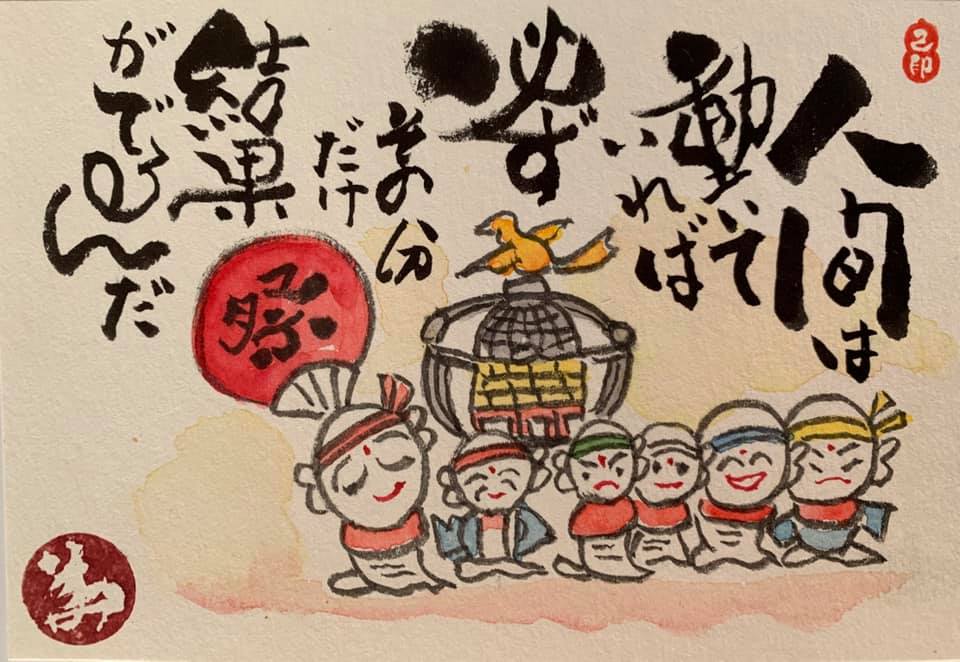 人間は
動いて
いれば
必ず
その分
だけ
結果
がでるんだ
祭